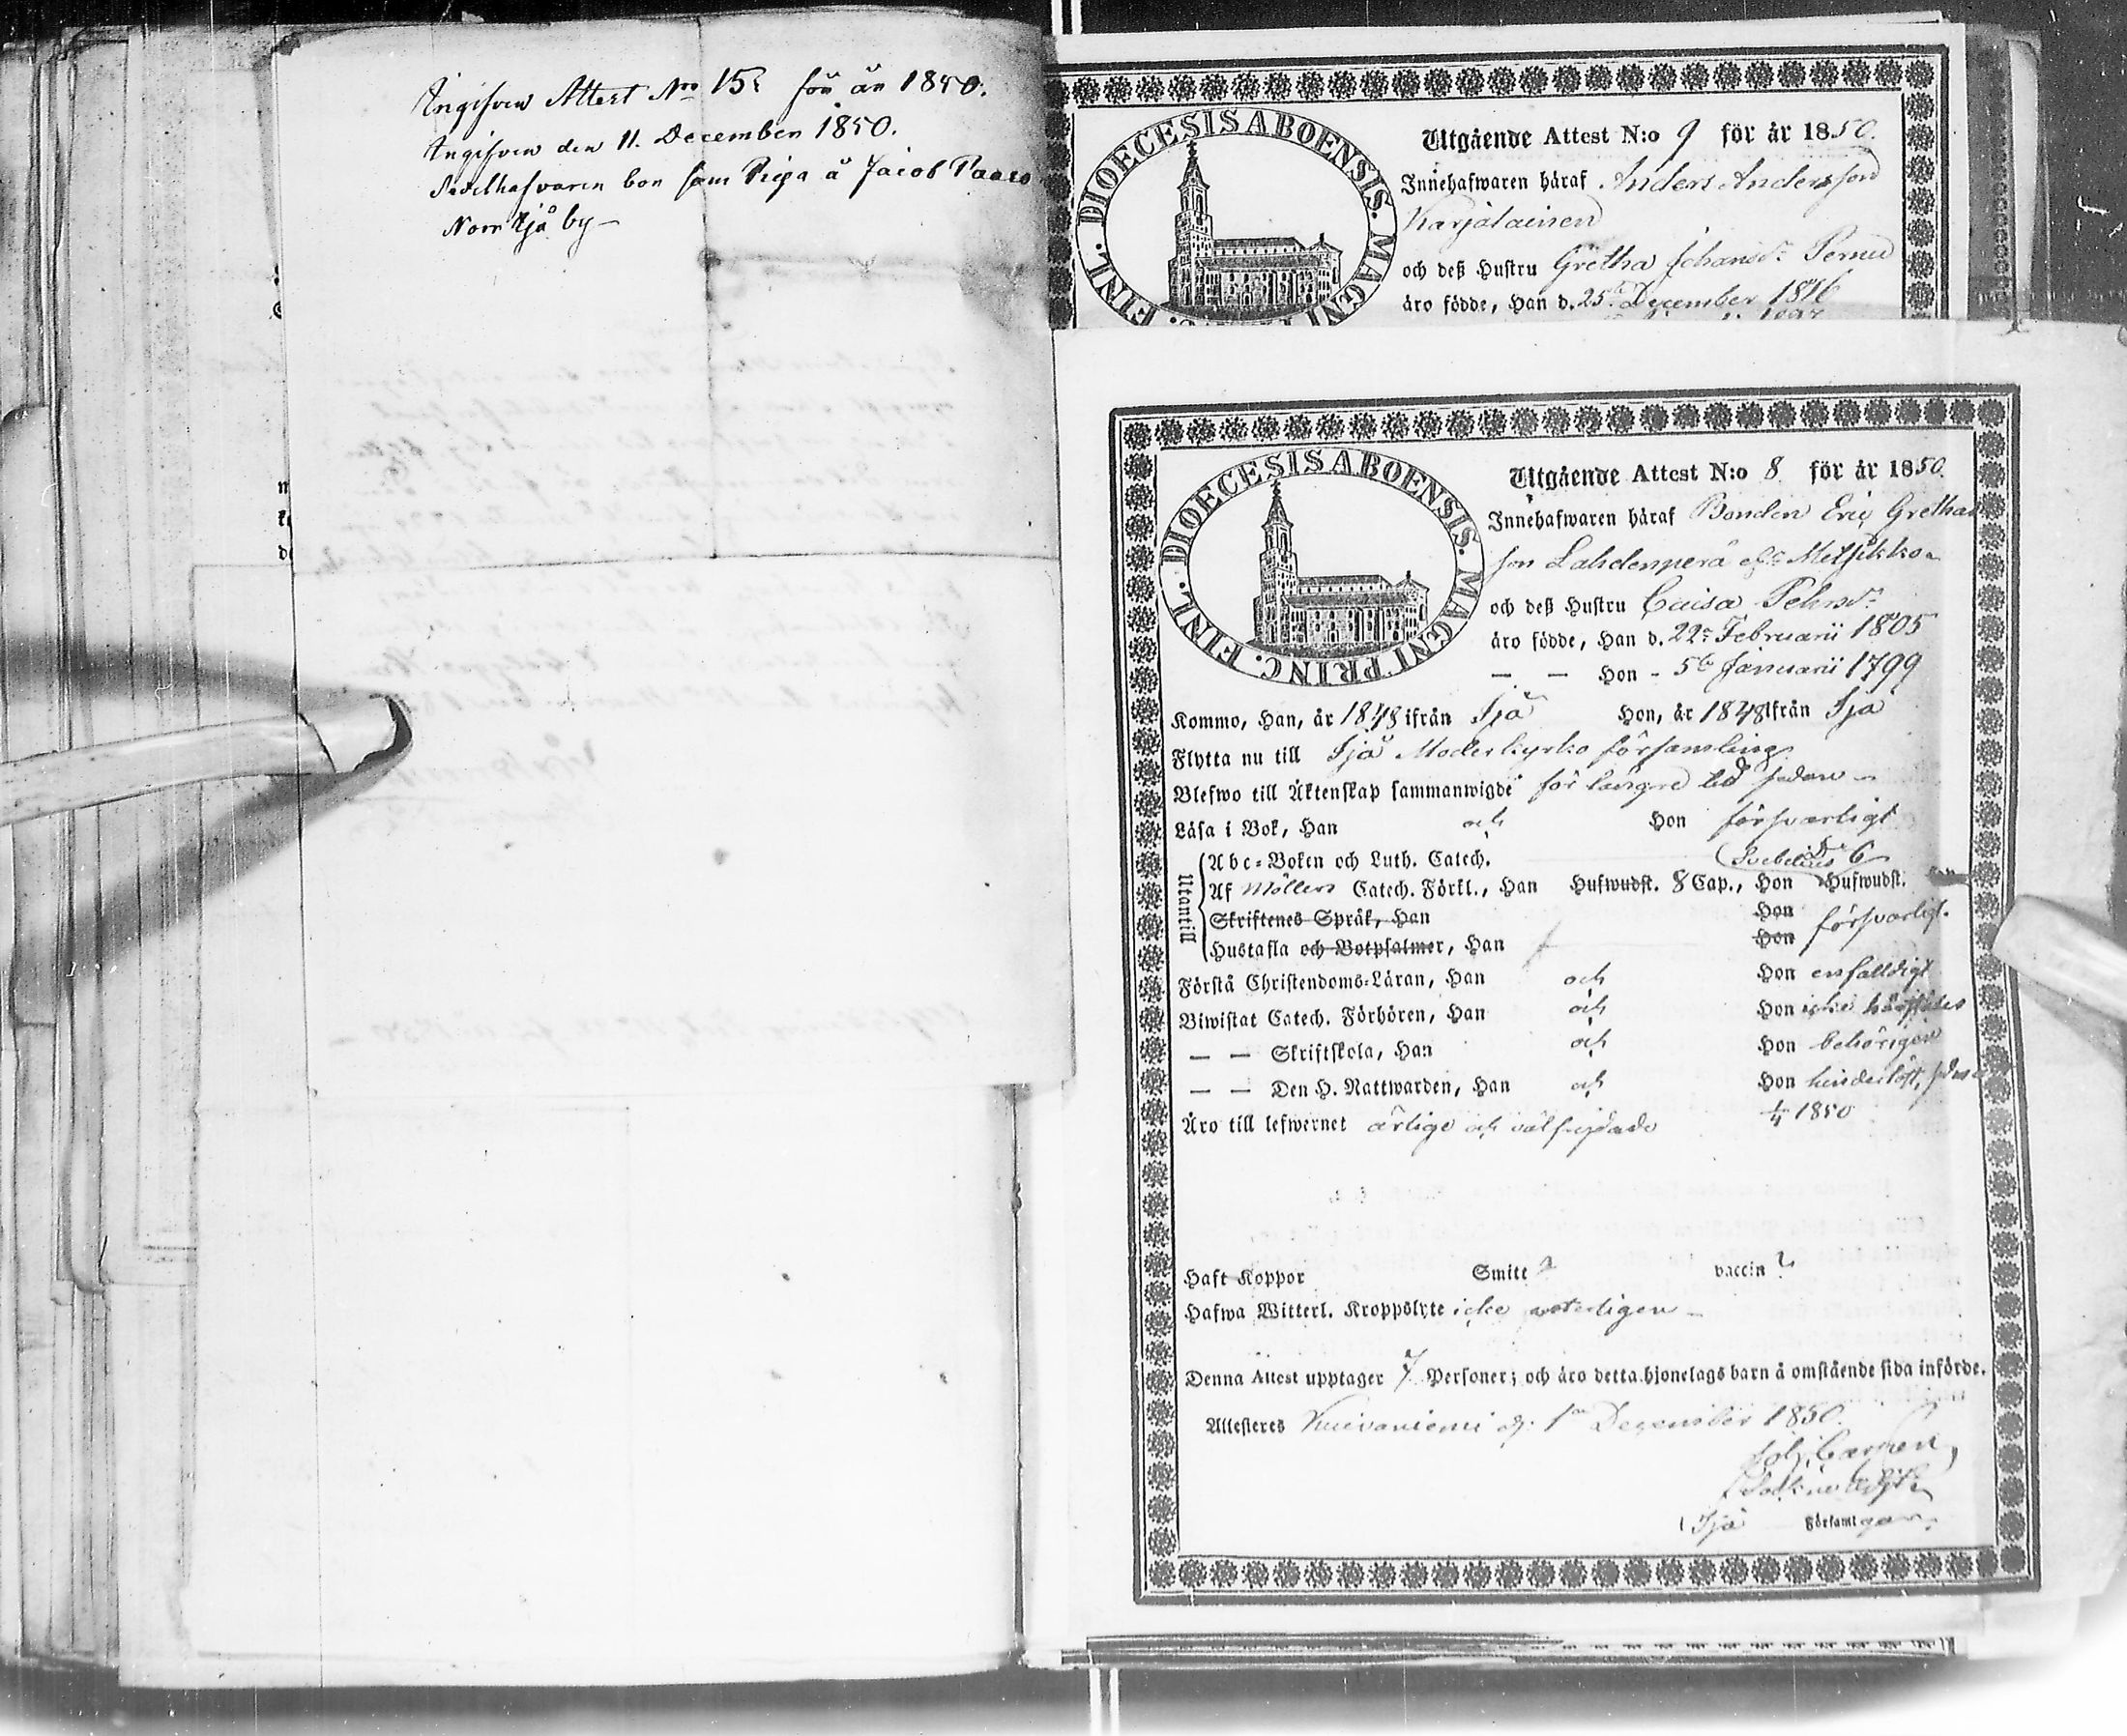 Ingifven Attest Nro 15 för år 1850.
Ingifven den 11. December 1850.
Sedelhafvaren bor som Piga å Jacob Paaso
Norr Ijå by –
DIOECESIS ABOENSIS. MAGNI FINL.
Utgående Attest N:o 9 för år 1850.
Innehafwaren häraf Anders Andersson
Karjalainen
och deß Hustru Gretha Johansdr Pernu
äro födde, Han d. 25te December 1816
DIOECESIS ABOENSIS. MAGNI PRINC. FINL.
Utgående Attest N:o 8 för år 1850.
Innehafwaren häraf Bonden Eric Grethas
son Lahdenperä
och deß Hustru Caisa Pehrsdr
äro födde, Han d. 22 Februarii 1805
— — Hon - 5te Januarii 1799
Kommo, Han, år 1848 ifrån Ijå Hon, år 1848 ifrån Ijå
Flytta nu till Ijå Moderkyrko församling
Blefwo till Äktenskap sammanwigde för längre tid sedan –
Läsa i Bok, Han och Hon försvarligt
Utantill
Abc-Boken och Luth. Catech.
Svebelius 6
Af Möllers Catech. Förkl., Han Hufwudst. 8 Cap., Hon Hufwudst.
Skriftenes Språk, Han Hon
Hustafla och Botpsalmer, Han Hon försvarligt.
Förstå Christendoms-Läran, Han och Hon enfalldigt
Biwistat Catech. Förhören, Han och Hon icke
— — Skriftskola, Han och Hon behörigen
— — Den H. Nattwarden, Han och Hon hinderlöst,
Äro till lefwernet ärlige och välfrejdade 1/4 1850
Haft Koppor Smitt vaccin
Hafwa Witterl. Kroppslyte icke veterligen –
Denna Attest upptager 7 Personer; och äro detta hjonelags barn å omstående sida införde.
Attesteres Kuivaniemi d. 1 December 1850.
Joh. Carpen
Ijå Församl